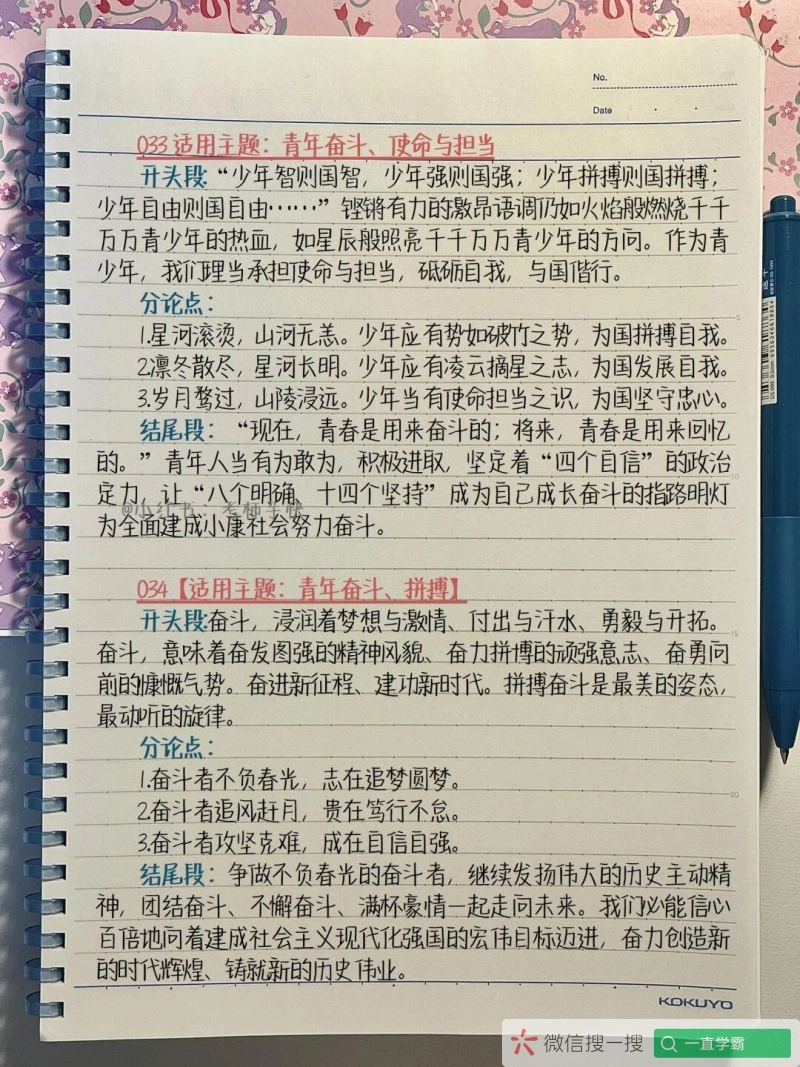 No.
Date
033适用主题：青年奋斗、使命与担当
开头段：“少年智则国智，少年强则国强；少年拼搏则国拼搏；
少年自由则国自由……”铿锵有力的激昂语调仍如火焰般燃烧千千
万万青少年的热血，如星辰般照亮千千万万青少年的方向。作为青
少年，我们理当承担使命与担当，砥砺自我，与国偕行。
分论点：
1.星河滚烫，山河无恙。少年应有势如破竹之势，为国拼搏自我。
2.凛冬散尽，星河长明。少年应有凌云摘星之志，为国发展自我。
3.岁月骛过，山陵浸远。少年当有使命担当之识，为国坚守忠心。
结尾段：“现在，青春是用来奋斗的；将来，青春是用来回忆
的。”青年人当有为敢为，积极进取，坚定着“四个自信”的政治
定力，让“八个明确、十四个坚持”成为自己成长奋斗的指路明灯
为全面建成小康社会努力奋斗。
034【适用主题：青年奋斗、拼搏】
开头段：奋斗，浸润着梦想与激情、付出与汗水、勇毅与开拓。
奋斗，意味着奋发图强的精神风貌、奋力拼博的顽强意志、奋勇向
前的慷慨气势。奋进新征程、建功新时代。拼搏奋斗是最美的姿态，
最动听的旋律。
分论点：
1.奋斗者不负春光，志在追梦圆梦。
2.奋斗者追风赶月，贵在笃行不怠。
3.奋斗者攻坚克难，成在自信自强。
结尾段：争做不负春光的奋斗者，继续发扬伟大的历史主动精
神，团结奋斗、不懈奋斗、满怀豪情一起走向未来。我们必能信心
百倍地向着建成社会主义现代化强国的宏伟目标迈进，奋力创造新
的时代辉煌、铸就新的历史伟业。
KOKUYO
微信搜一搜
一直学霸